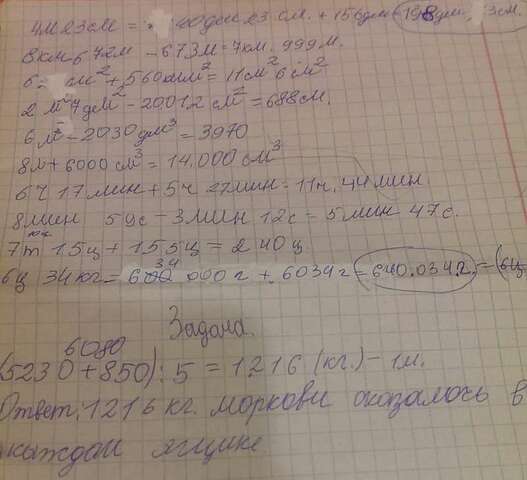 4м 23см = 40дм 23 см. + 156дм = 198дм, 3см.
8км 672м - 673м = 7км. 999м.
6 см² + 560мм² = 11см² 6 см²
2 м² 7дм² - 20012 см² = 688см.
6м³ - 2030 дм³ = 3970
8л + 6000 см³ = 14.000 см³
6ч 17мин + 5ч 27мин = 11ч. 44мин.
8мин 59с - 3мин 12с = 5мин 47с.
7т 15ц + 155ц = 240ц.
6ц 34кг = 634 000г + 6034г = 640.034г. = (6ц
Задача.
6080
(5230 + 850) : 5 = 1216 (кг.) - 1м.
Ответ: 1216 кг. моркови оказалось в
каждом ящике